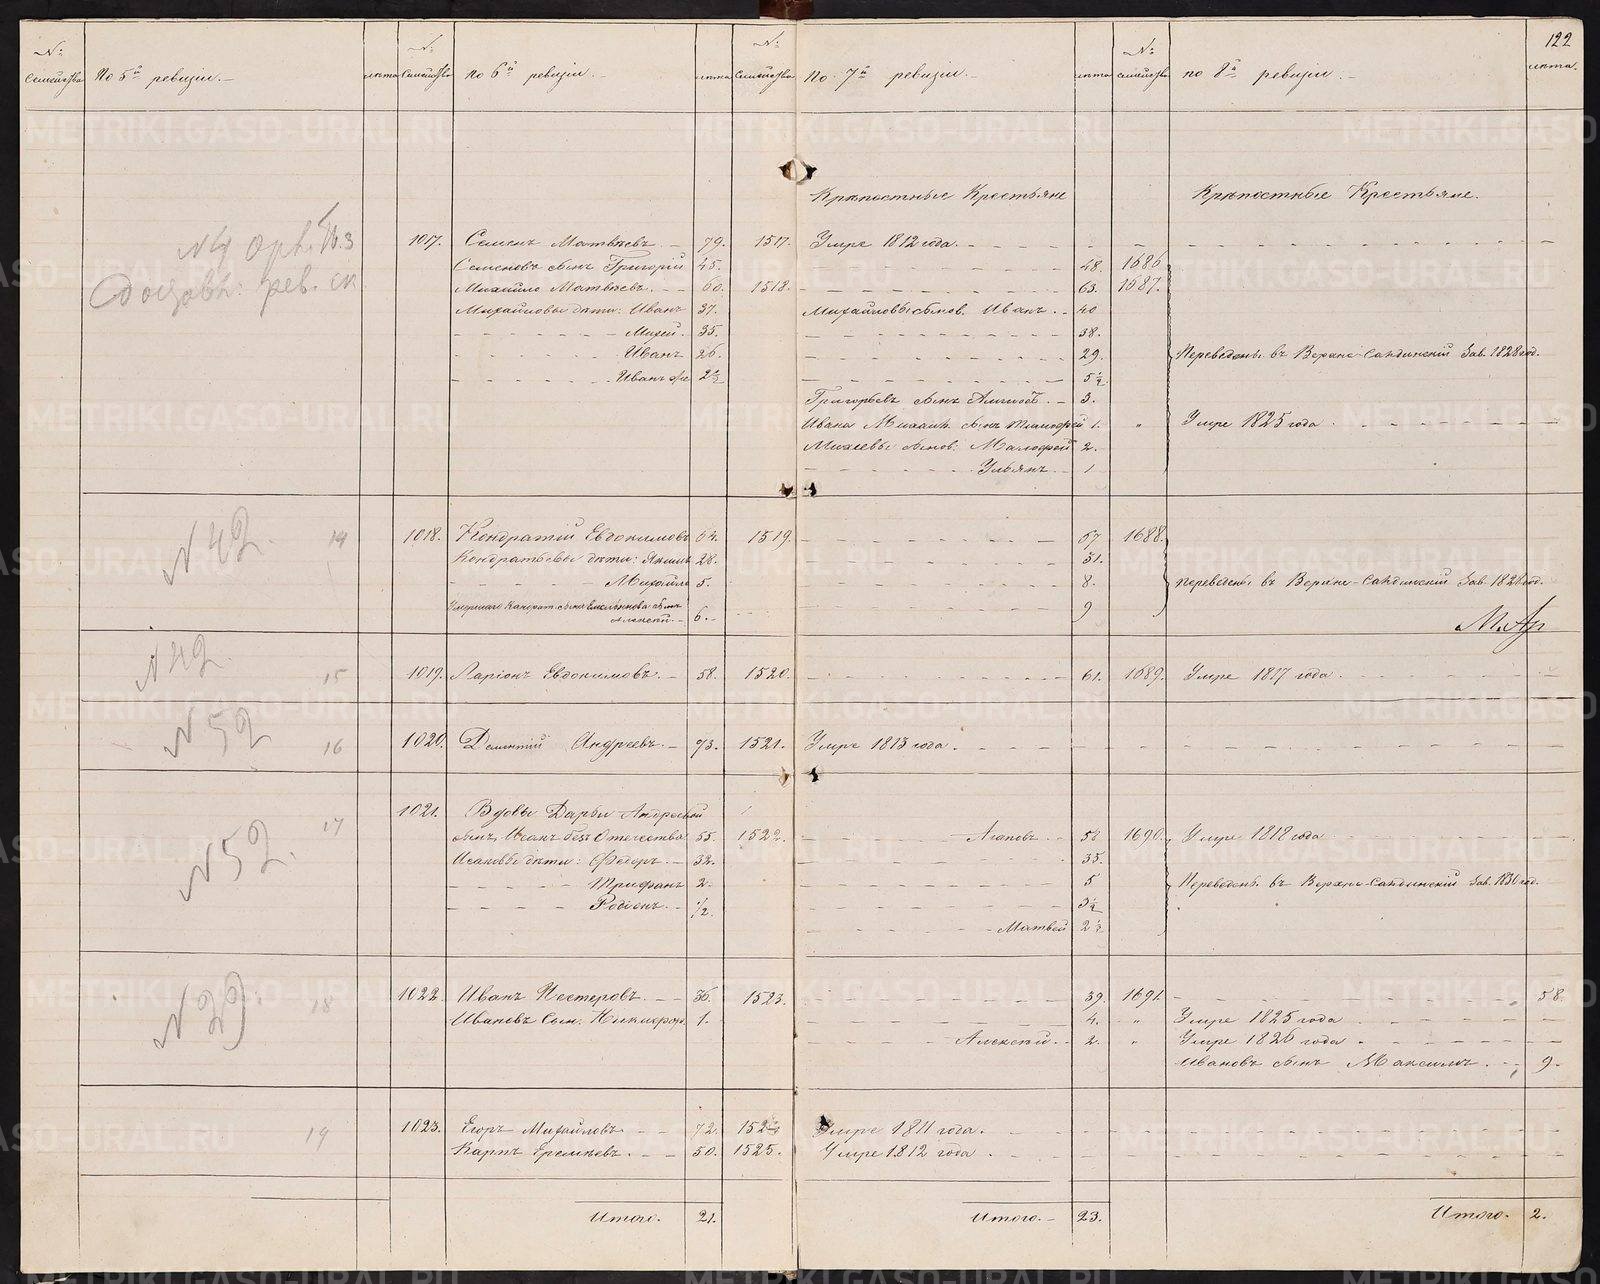 122
№ Семейства По 5й ревизіи. лѣта № Семейства по 6й ревизіи. лѣта № Семейства По 7й ревизіи. лѣта № семейства по 8й ревизіи. лѣта.
Крѣпостные Крестьяне Крѣпостные Крестьяне.
1017. Семенъ Матвѣевъ. 79. 1517. Умре 1812 года.
Семеновъ сынъ Григорій 45. 48. 1686
Михайло Матвѣевъ. 60. 1518. 63. 1687.
Михайловы дѣти: Иванъ 37. Михайловы сынов. Иванъ. 40
Михей. 35. 38.
Иванъ 26. 29. Переведены въ Верхне-Салдинскій Зав. 1828 год.
Иванъ же 2½ 5½
Григорьевъ сынъ 3.
Ивана Михайл. сынъ Тимофей 1. " Умре 1825 года.
Михеевы сынов. 2.
Ульянъ. 1
№ 42. 14 1018. Кондратій Евдокимовъ 64. 1519. 67 1688.
Кондратьевы дѣти: Якимъ 28. 31.
Михайло 5. 8. переведены въ Верхне-Салдинскій Зав. 1826 год.
Умершаго Кондрат. сына сынъ
Алексѣй. 6. 9
№ 42. 15 1019. Ларіонъ Евдокимовъ. 58. 1520. 61. 1689. Умре 1817 года.
№ 52 16 1020. Дементій Андреевъ. 73. 1521. Умре 1813 года.
17 1021. Вдовы Дарьи Андреевой
№ 52. сынъ Исакъ безъ Отечества 55. 1522. 58 1690. Умре 1818 года
Исаковы дѣти: Федоръ. 32. 35.
Трифанъ 2. 5 Переведены въ Верхне-Салдинскій Зав. 1830 год.
Родіонъ. ½. 3½
Матвей 2½
№ 29 18 1022. Иванъ Нестеровъ. 36. 1523. 39. 1691. 58.
Ивановъ Сын. Никифоръ 1. 4. " Умре 1825 года
Алексѣй. 2. " Умре 1826 года.
Ивановъ сынъ Максимъ. 9.
19 1023. Егоръ Михайловъ 72. 1524 Умре 1811 года.
Карпъ Еремѣевъ. 50. 1525. Умре 1812 года.
Итого. 21. Итого. 23. Итого. 2.
METRIKI.GASO-URAL.RU